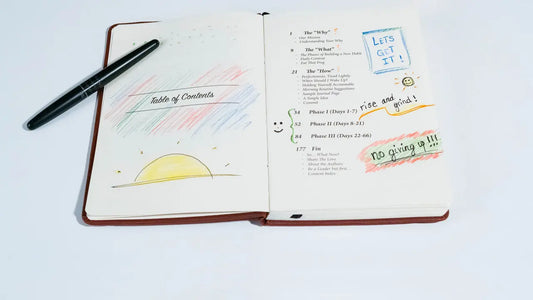 Table of Contents
1 The "Why"
· Our Mission
· Understanding Your Why
8 The "What"
· The Phases of Building a New Habit
· Daily Content
· Eat This Frog
21 The "How"
· Perfectionists, Tread Lightly
· When Should I Wake Up?
· Holding Yourself Accountable
· Morning Routine Suggestions
· Sample Journal Page
· A Simple Idea
· Commit
34 Phase I (Days 1-7)
52 Phase II (Days 8-21)
84 Phase III (Days 22-66)
177 Fin
· So... What Now?
· Share The Love
· About the Authors
· Be a Leader but first...
· Content Index
LETS
GET
IT!
rise and
grind!
no giving up!!!